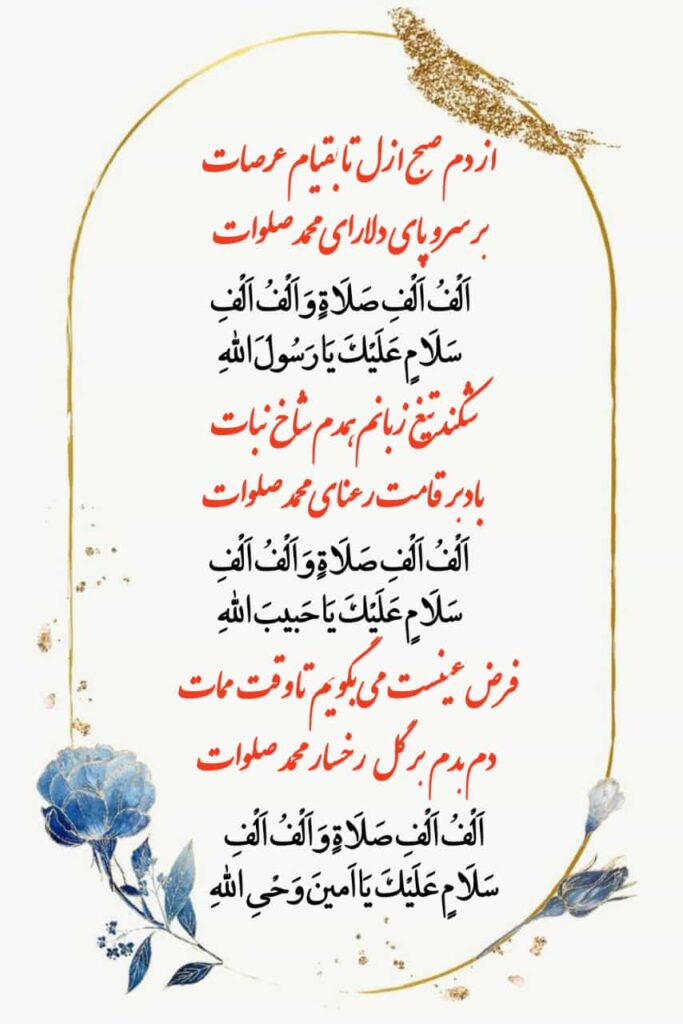 از دم صبح ازل تا بقیام عرصات
بر سر و پای دلارای محمد صلوات
اَلْفُ اَلْفِ صَلَاةٍ وَ اَلْفُ اَلْفِ
سَلَامٍ عَلَيْكَ يَا رَسُولَ اللهِ
شکند تیغ زبانم همدم شاخ نبات
باد بر قامت رعنای محمد صلوات
اَلْفُ اَلْفِ صَلَاةٍ وَ اَلْفُ اَلْفِ
سَلَامٍ عَلَيْكَ يَا حَبيبَ اللهِ
فرض عینست می بگویم تا وقت ممات
دم بدم بر گل رخسار محمد صلوات
اَلْفُ اَلْفِ صَلَاةٍ وَ اَلْفُ اَلْفِ
سَلَامٍ عَلَيْكَ يَا اَمينَ وَحْيِ اللهِ